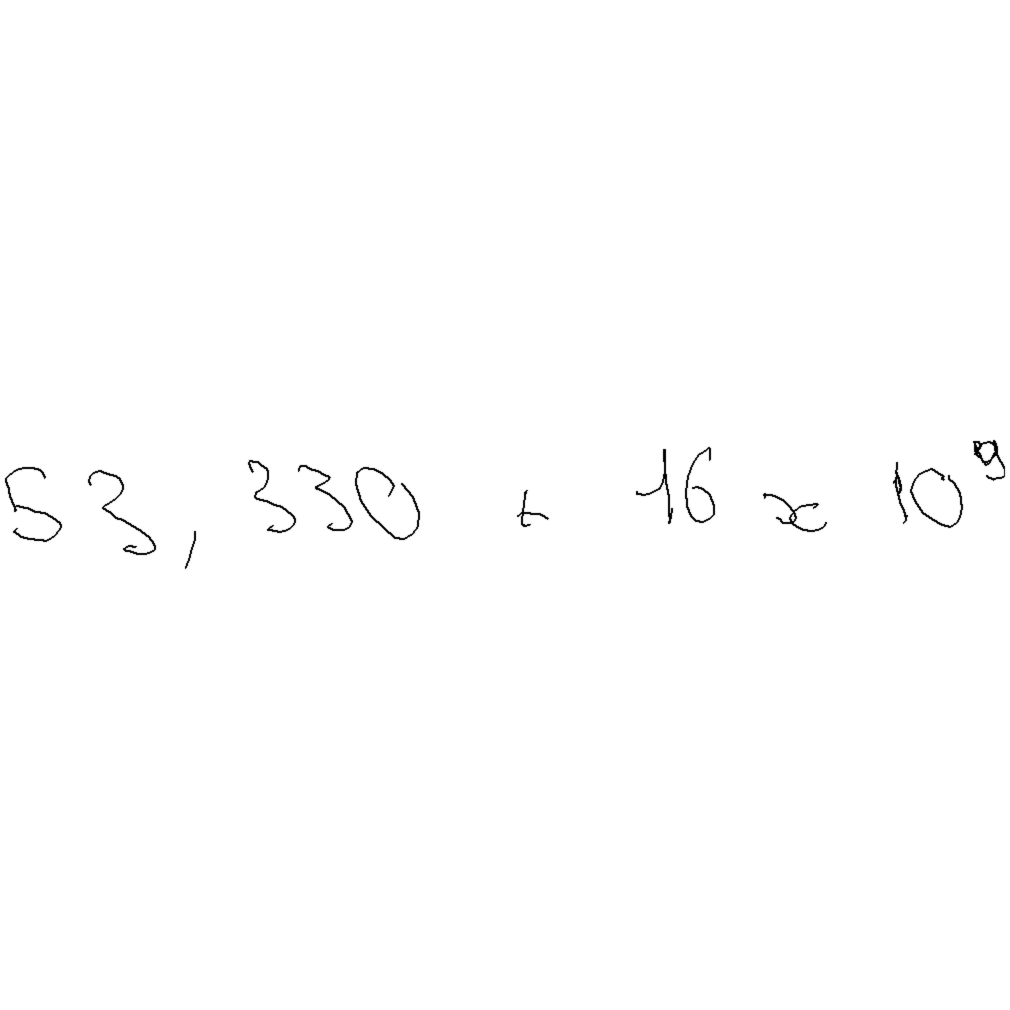 53,330 + 16 x 10⁹